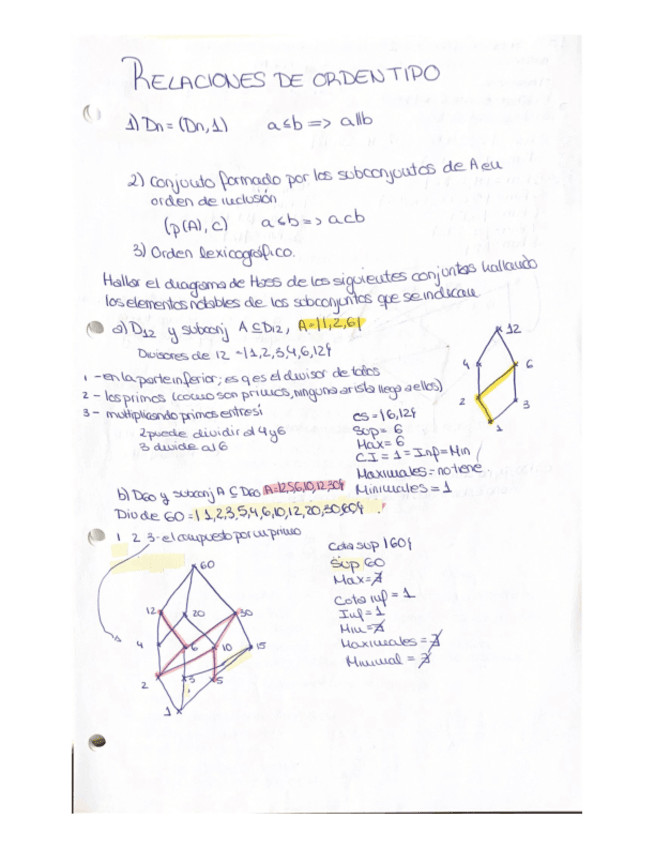 RELACIONES DE ORDEN TIPO
1) Dn = (Dn, 1) a≤b => a||b
2) Conjunto formado por los subconjuntos de A en
orden de inclusión
(p(A), c) a≤b => acb
3) Orden lexicográfico.
Hallar el diagrama de Hases de los siguientes conjuntos hallando
los elementos notables de los subconjuntos que se indican
a) D12 y subconj A ⊆ D12, A={1,2,6}
Divisores de 12 = {1,2,3,4,6,12}
1 - en la parte inferior; es q es el divisor de todos
2 - los primos (como son primos, ninguna arista llega a ellos)
3 - multiplicando primos entre sí
2 puede dividir al 4 y 6
3 divide al 6
12
4
6
2
3
1
cs = {6,12}
Sup = 6
Max = 6
CI = 1 = Inf = Min
Maximales = no tiene
Minimales = 1
b) D60 y subconj A ⊆ D60 A={2,5,6,10,12,30}
Div de 60 = {1,2,3,5,4,6,10,12,20,30,60}
1 2 3 - el compuesto por un primo
60
12
20
30
4
6
10
15
2
3
5
1
Cota sup {60}
Sup 60
Max = ∄
Cota inf = 1
Inf = 1
Min = ∄
Maximales = ∄
Minimal = ∄